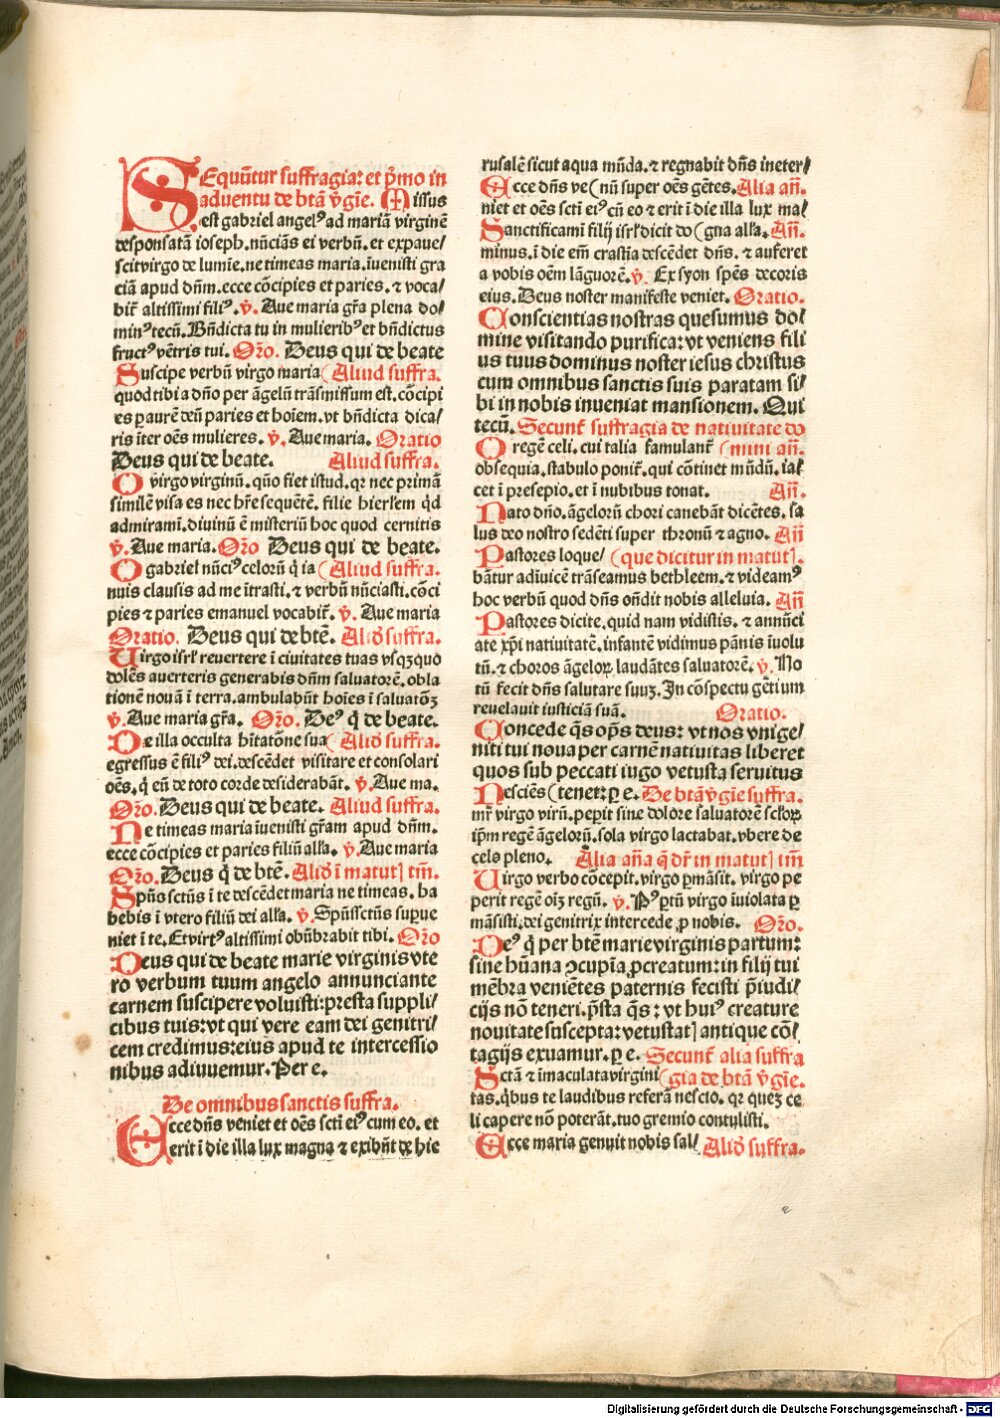 SEquūtur suffragia: et p̄mo in
aduentu de btā v̄gīe. Missus
est gabriel angelꝰ ad mariā virginē
desponsatā ioseph. nūciās ei verbū. et expaue/
scit virgo de lumīe. ne timeas maria. īuenisti gra
ciā apud dn̄m. ecce cōcipies et paries. ⁊ voca/
bit̄ altissimi filiꝰ. v̄. Aue maria gr̄a plena do/
minꝰ tecū. Bn̄dicta tu in mulieribꝰ et bn̄dictus
fructꝰ vētris tui. Or̄o. Deus qui de beate
Suscipe verbū virgo maria (Aliud suffra.
quod tibi a dn̄o per āgelū trāsmissum est. cōcipi
es ⁊ paurē deū paries et hoīem. vt bn̄dicta dica/
ris īter oēs mulieres. v̄. Aue maria. Oratio
Deus qui de beate. Aliud suffra.
O virgo virginū. qūo fiet istud. qꝛ nec primā
similē visa es nec hr̄e sequētē. filie hierl̄em q̄d
admiramī. diuinū ē misteriū hoc quod cernitis
v̄. Aue maria. Or̄o Deus qui de beate.
O gabriel nūciꝰ celorū q̄ ia (Aliud suffra.
nuis clausis ad me ītrasti. ⁊ verbū nūciasti. cōci
pies ⁊ paries emanuel vocabit̄. v̄. Aue maria
Oratio. Deus qui de btē. Aliō suffra.
Virgo isrl̄ reuertere ī ciuitates tuas vsqꝫquo
dolēs auerteris generabis dn̄m saluatorē. obla
tionē nouā ī terra. ambulabūt hoīes ī saluatōꝫ
v̄. Aue maria gr̄a. Or̄o. Deꝰ q̄ de beate.
De illa occulta hītatōne sua (Aliō suffra.
egressus ē filiꝰ dei. descēdet visitare et consolari
oēs. q̄ eū de toto corde desiderabāt. v̄. Aue ma.
Or̄o. Deus qui de beate. Aliud suffra.
Ne timeas maria īuenisti gr̄am apud dn̄m.
ecce cōcipies et paries filiū all̄a. v̄. Aue maria
Or̄o. Deus q̄ de btē. Aliō ī matutꝭ tm̄.
Spūs sctūs ī te descēdet maria ne timeas. ha
bebis ī vtero filiū dei all̄a. v̄. Spūssctūs sup̱ue
niet ī te. Et virtꝰ altissimi obūbrabit tibi. Or̄o
Deus qui de beate marie virginis vte
ro verbum tuum angelo annunciante
carnem suscipere voluisti: presta suppli/
cibus tuis: vt qui vere eam dei genitri/
cem credimus: eius apud te intercessio
nibus adiuuemur. Per e.
De omnibus sanctis suffra.
Ecce dn̄s veniet et oēs sctī eiꝰ cum eo. et
erit ī die illa lux magna ⁊ exibūt de hie
rusalē sicut aqua mūda. ⁊ regnabit dn̄s in eter/
Ecce dn̄s ve (nū super oēs gētes. Alia an̄.
niet et oēs sctī eiꝰ cū eo ⁊ erit ī die illa lux ma/
Sanctificamī filij isrl̄ dicit do (gna all̄a. An̄.
minus. ī die em̄ crastīa descēdet dn̄s. ⁊ auferet
a vobis oēm lāguorē. v̄. Ex syon spēs decoris
eius. Deus noster manifeste veniet. Oratio.
Conscientias nostras quesumus do/
mine visitando purifica: vt veniens fili
us tuus dominus noster iesus christus
cum omnibus sanctis suis paratam si/
bi in nobis inueniat mansionem. Qui
tecū. Secunt̄ suffragia de natiuitate do
O regē celi. cui talia famulant̄ (mini an̄.
obsequia. stabulo ponit̄. qui cōtinet mūdū. ia/
cet ī presepio. et ī nubibus tonat. An̄.
Nato dn̄o. āgelorū chori canebāt dicētes. sa
lus deo nostro sedēti super thronū ⁊ agno. An̄
Pastores loque/ (que dicitur in matutꝭ.
bātur adīuicē trāseamus bethleem. ⁊ videamꝰ
hoc verbū quod dn̄s on̄dit nobis alleluia. An̄
Pastores dicite. quid nam vidistis. ⁊ annūci
ate xp̄i natiuitatē. infantē vidimus pānis īuolu
tū. ⁊ choros āgeloꝝ laudātes saluatorē. v̄. No
tū fecit dn̄s salutare suuꝫ. In cōspectu gētium
reuelauit iusticiā suā. Oratio.
Concede q̄s op̄s deus: vt nos vnige/
niti tui noua per carnē natiuitas liberet
quos sub peccati iugo vetusta seruitus
Nesciēs (tenet: ꝑ e. De btā v̄gīe suffra.
mr̄ virgo virū. peꝑit sine dolore saluatorē sc̄loꝝ
ip̄m regē āgelorū. sola virgo lactabat. vbere de
celo pleno. Alia an̄a q̄ dr̄ in matutꝭ tm̄
Virgo verbo cōcepit. virgo ꝑmāsit. virgo pe
perit regē oīꝫ regū. v̄. Pꝰ ꝑtū virgo īuiolata ꝑ
māsisti. dei genitrix intercede ꝓ nobis. Or̄o.
Deꝰ q̄ per btē marie virginis partum:
sine hūana ꝯcupīa ꝓcreatum: in filij tui
mēbra veniētes paternis fecisti p̄iudi/
cijs nō teneri. p̄sta q̄s: vt huiꝰ creature
nouitate suscepta: vetustatꝭ antique cō/
tagijs exuamur. ꝑ e. Secunt̄ alia suffra
Sctā ⁊ īmaculata virgini (gia de btā v̄gīe.
tas. q̄bus te laudibus referā nescio. qꝛ queꝫ ce
li capere nō poterāt. tuo gremio contulisti.
Ecce maria genuit nobis sal/ Aliō suffra.
Digitalisierung gefördert durch die Deutsche Forschungsgemeinschaft - DFG